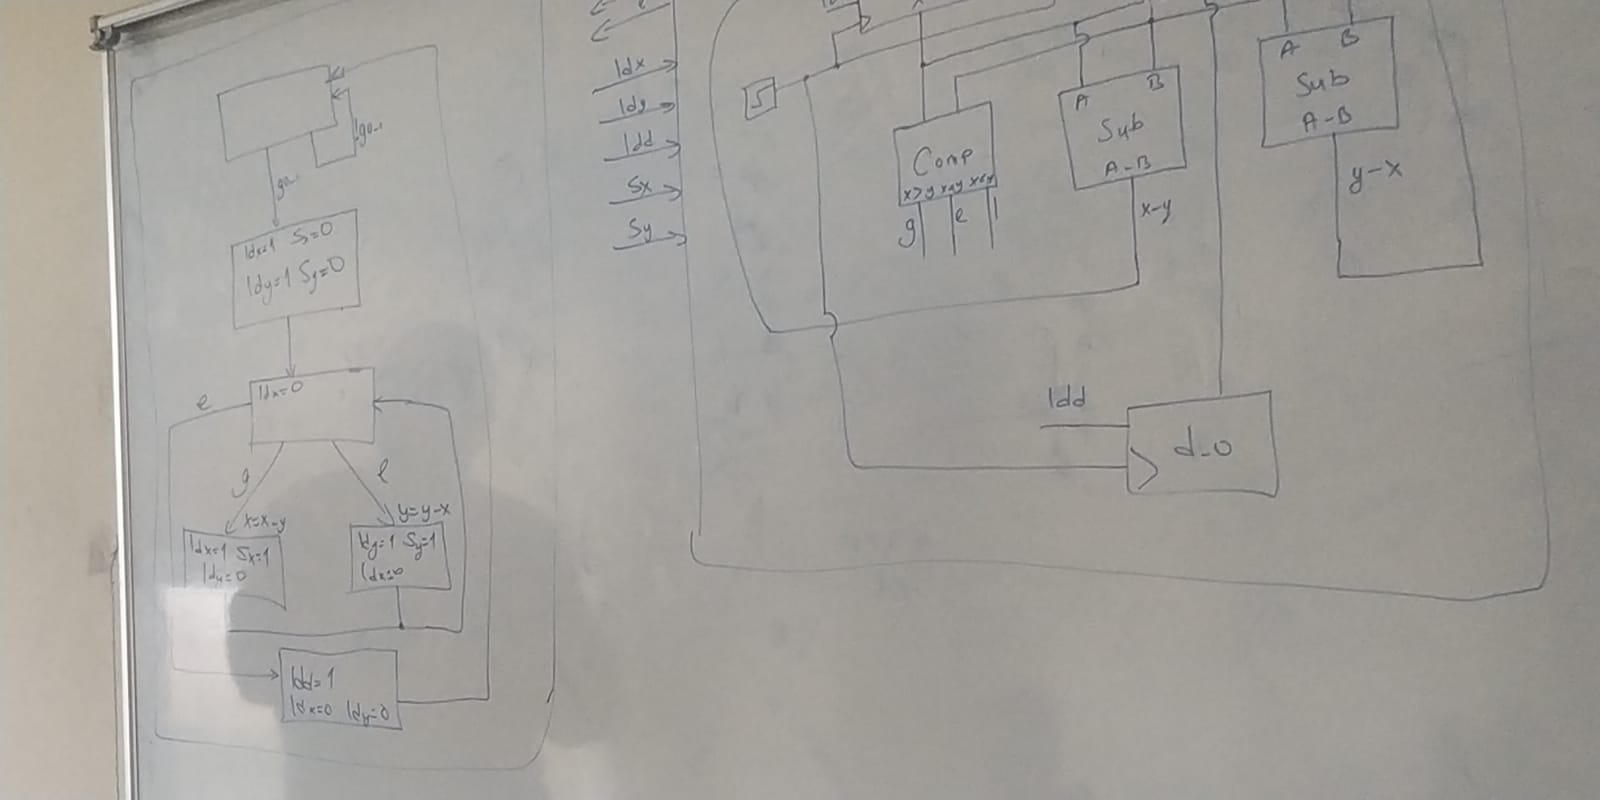 !go_i
go_i
ldx=1 Sx=0
ldy=1 Sy=0
ldx=0
e
g
l
x=x-y
ldx=1 Sx=1
ldy=0
y=y-x
ldy=1 Sy=1
ldx=0
ldd=1
ldx=0 ldy=0
ldx
ldy
ldd
Sx
Sy
Comp
x>y x=y x<y
g e l
A B
Sub
A-B
x-y
A B
Sub
A-B
y-x
ldd
d_o